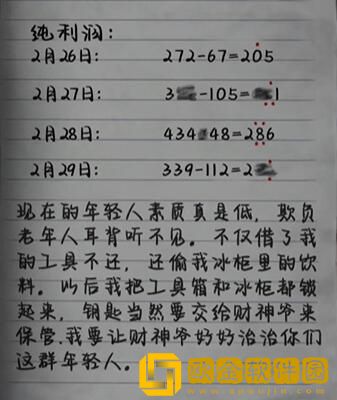 纯利润:
2月26日: 272-67=205
2月27日: 3 -105= 1
2月28日: 434 48=286
2月29日: 339-112=2
现在的年轻人素质真是低,欺负
老年人耳背听不见。不仅借了我
的工具不还,还偷我冰柜里的饮
料。此后我把工具箱和冰柜都锁
起来,钥匙当然要交给财神爷来
保管,我要让财神爷好好治治你们
这群年轻人。